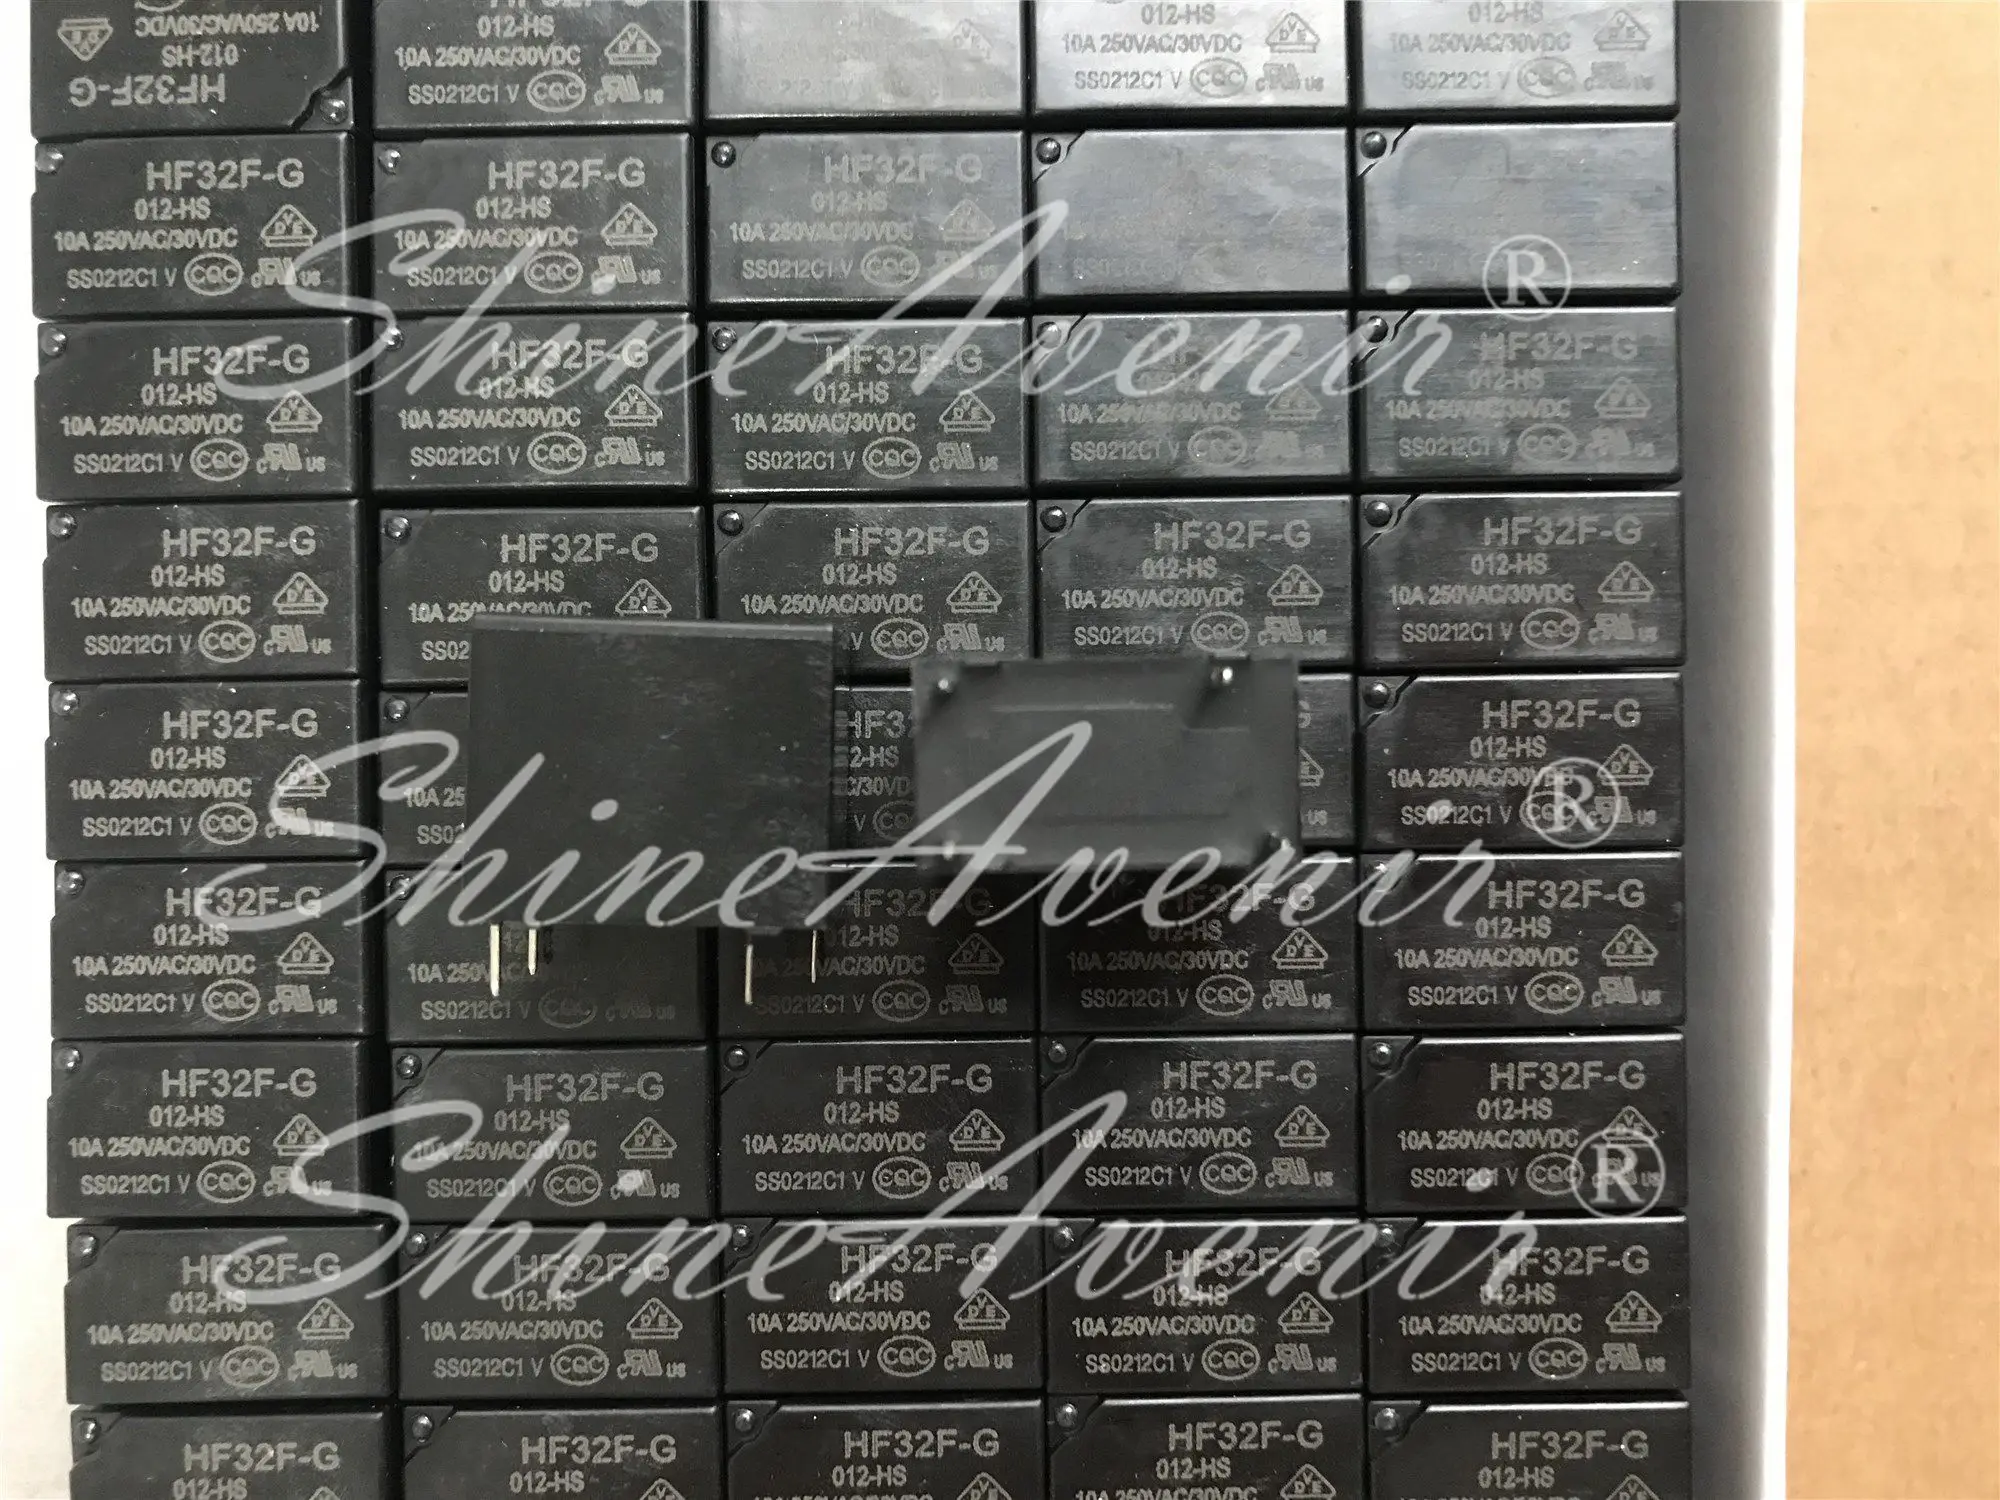 10A 250VAC/30VDC
012-HS
HF32F-G
012-HS
10A 250VAC/30VDC
SS0212C1 V CQC c US
012-HS
10A 250VAC/30VDC
SS0212C1 V CQC c US
012-HS
10A 250VAC/30VDC
SS0212C1 V CQC c US
HF32F-G
012-HS
10A 250VAC/30VDC
SS0212C1 V CQC c US
HF32F-G
012-HS
10A 250VAC/30VDC
SS0212C1 V CQC c US
HF32F-G
012-HS
10A 250VAC/30VDC
SS0212C1 V CQC
ShineAvenir ®
HF32F-G
012-HS
10A 250VAC/30VDC
SS0212C1 V CQC c US
HF32F-G
012-HS
10A 250VAC/30VDC
SS0212C1 V CQC c US
HF32F-G
012-HS
10A 250VAC/30VDC
SS0212C1 V CQC c US
10A 250VAC/30VDC
SS0212C1 V CQC
HF32F-G
012-HS
10A 250VAC/30VDC
SS0212C1 V CQC c US
HF32F-G
012-HS
10A 250VAC/30VDC
SS0212C1 V CQC c US
HF32F-G
012-HS
10A 250VAC/30VDC
HF32F-G
012-HS
10A 250VAC/30VDC
CQC c US
HF32F-G
012-HS
10A 250VAC/30VDC
SS0212C1 V CQC c US
HF32F-G
012-HS
10A 250VAC/30VDC
SS0212C1 V CQC c US
HF32F-G
012-HS
10A 250VAC/30VDC
SS0212C1 V CQC c US
HF32F-G
012-HS
10A 250VAC/30VDC
SS0212C1 V CQC c US
ShineAvenir ®
HF32F-G
012-HS
10A 250VAC/30VDC
SS0212C1 V CQC c US
SS0212C1 V CQC c US
HF32F-G
012-HS
10A 250VAC/30VDC
SS0212C1 V CQC c US
HF32F-G
012-HS
10A 250VAC/30VDC
SS0212C1 V CQC c US
HF32F-G
012-HS
10A 250VAC/30VDC
SS0212C1 V CQC c US
HF32F-G
012-HS
10A 250VAC/30VDC
SS0212C1 V CQC c US
HF32F-G
012-HS
10A 250VAC/30VDC
SS0212C1 V CQC c US
HF32F-G
012-HS
10A 250VAC/30VDC
SS0212C1 V CQC c US
HF32F-G
012-HS
10A 250VAC/30VDC
SS0212C1 V CQC c US
HF32F-G
012-HS
10A 250VAC/30VDC
SS0212C1 V CQC
ShineAvenir ®
HF32F-G
012-HS
10A 250VAC/30VDC
SS0212C1 V CQC c US
HF32F-G
012-HS
10A 250VAC/30VDC
SS0212C1 V CQC c US
HF32F-G
012-HS
10A 250VAC/30VDC
SS0212C1 V CQC c US
HF32F-G
012-HS
10A 250VAC/30VDC
SS0212C1 V CQC c US
HF32F-G
012-HS
10A 250VAC/30VDC
SS0212C1 V CQC c US
HF32F-G
012-HS
HF32F-G
012-HS
HF32F-G
012-HS
HF32F-G
012-HS
HF32F-G
012-HS